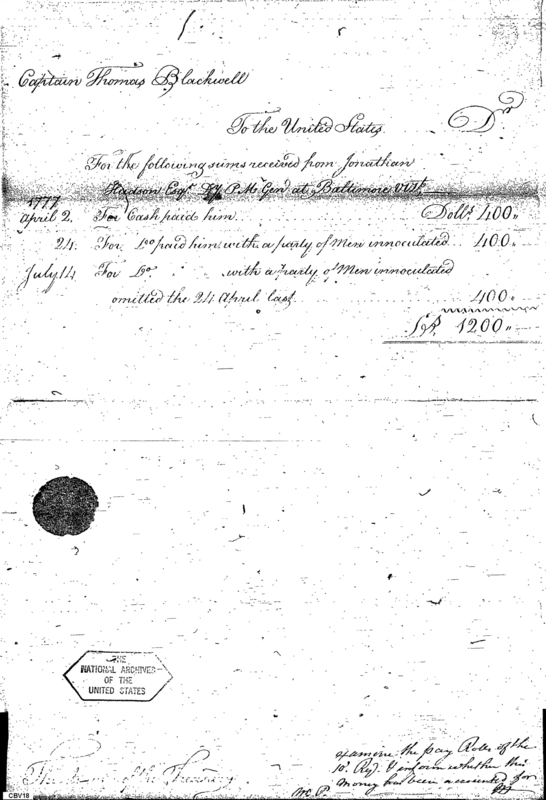 Captain Thomas Blackwell
To the United States Dr
For the following sums received from Jonathan
Hudson Esqr Dy P.M. Genl at Baltimore vizt
1777
April 2. For Cash paid him Dolls 400
24. For Do paid him with a party of Men innoculated 400
July 14 For Do with a party of Men innoculated
omitted the 24 April last 400
1200
THE
NATIONAL ARCHIVES
OF THE
UNITED STATES
examine the pay Rolls of the
10 Regt & inform whether this
money has been accounted for
of the Treasury
CBV18